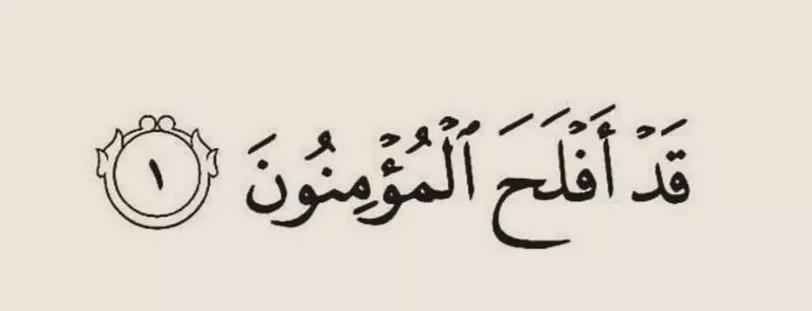 قَدْ أَفْلَحَ ٱلْمُؤْمِنُونَ ١